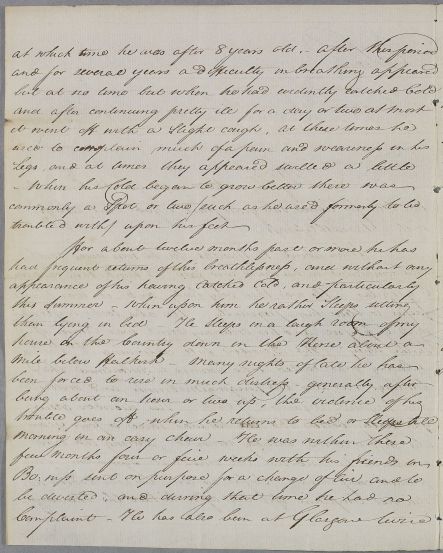 at which time he was after 8 years old. – After this period
and for several years a difficulty in breathing appeared
but at no time but when he had evidently catched Cold
and after continuing pretty ill for a day or two at most
it went off with a slight cough, at these times he
used to complain much of a pain and weariness in his
Legs, and at times they appeared swelled a little
– When his Cold began to grow better there was
commonly a Spot or two (such as he used formerly to be
troubled with) upon his feet
For about twelve months past or more he has
had frequent returns of this breathlessness, and without any
appearance of his having catched Cold and particularly
this Summer – When upon him he rather sleeps sitting
than lying in bed – He sleeps in a large room of my
house in the Country down in the Kerse about a
mile below Falkirk – Many nights of late he has
been forced to rise in much distress – generally after
being about an hour or two up, the violence of his
trouble goes off when he returns to bed or sleeps till
morning in an easy chair – He was within these
few Months four or five weeks with his friends in
Bo,ness sent on purpose for a change of air and to
be diverted, and during that time he had no
Complaint – He has also been at Glasgow twice